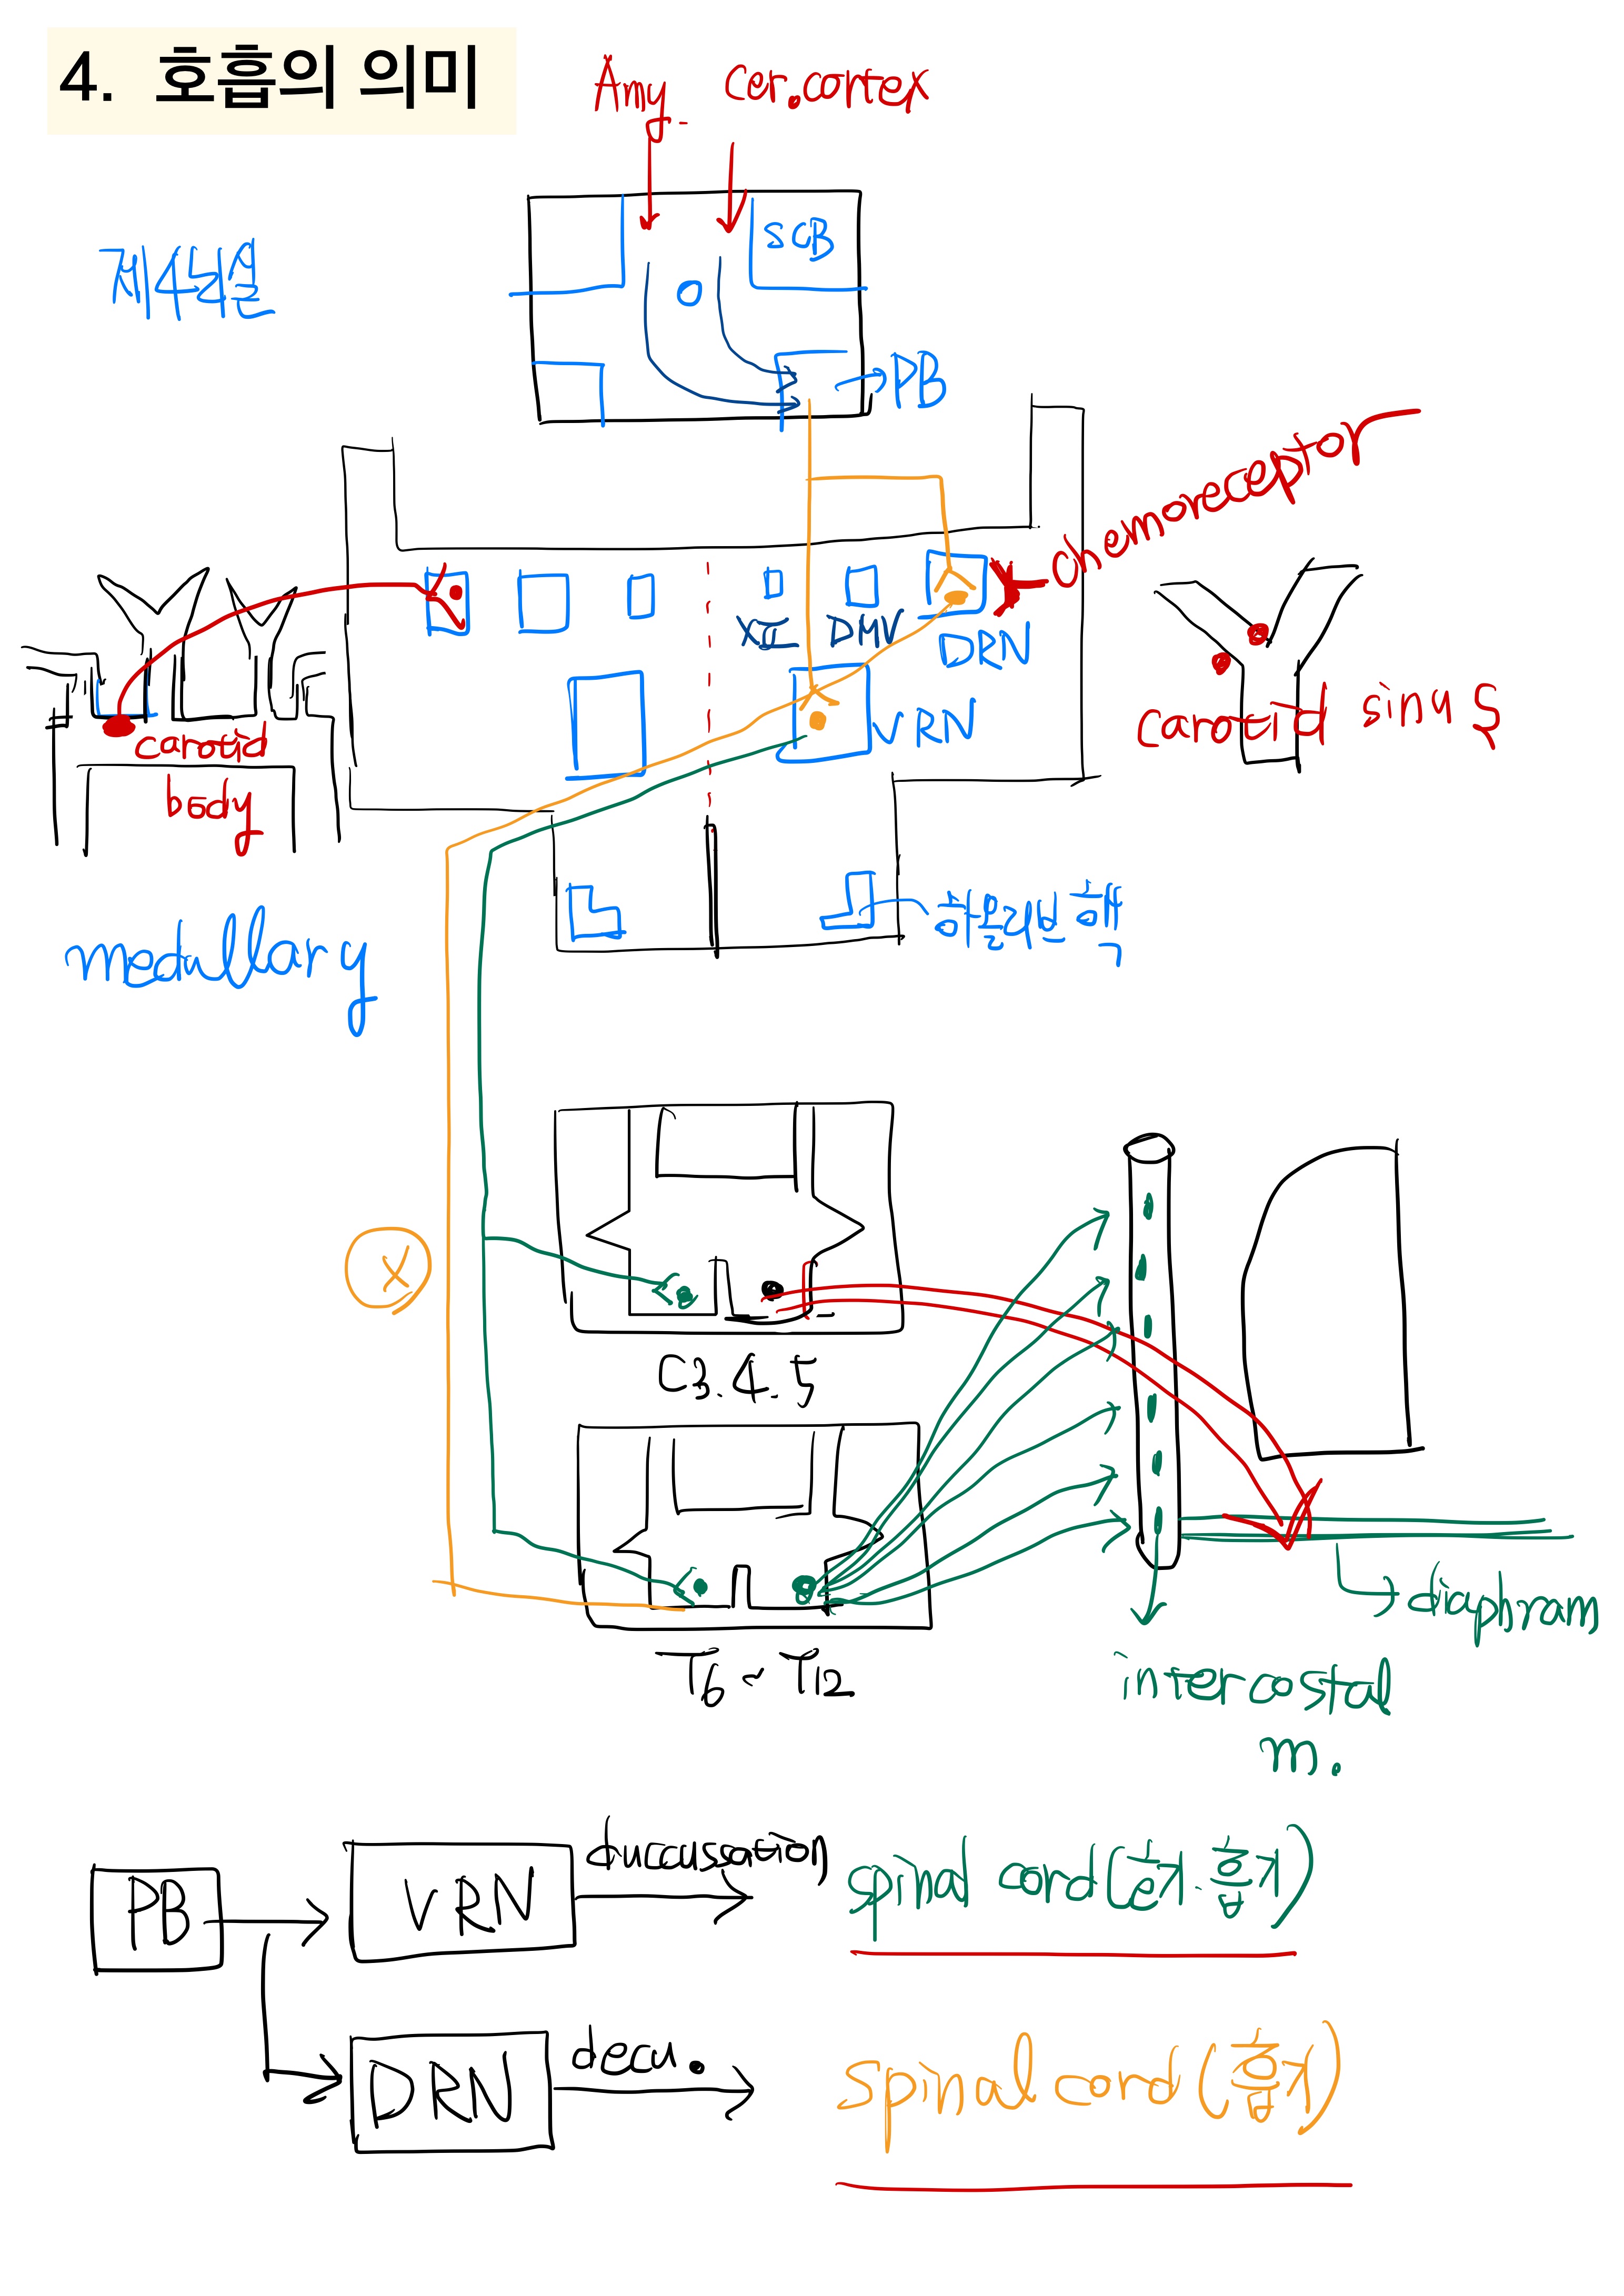 4. 호흡의 의미
Amy. cer.cortex
제4뇌실
SCB
PB
chemoreceptor
XII DMV DRN
VRN
carotid
body
carotid sinus
medullary
X
C3.4.5
T6~T12
diaphram
intercostal
m.
PB
VRN
spinal cord(호기.흡기)
DRN
decu.
spinal cord(흡기)